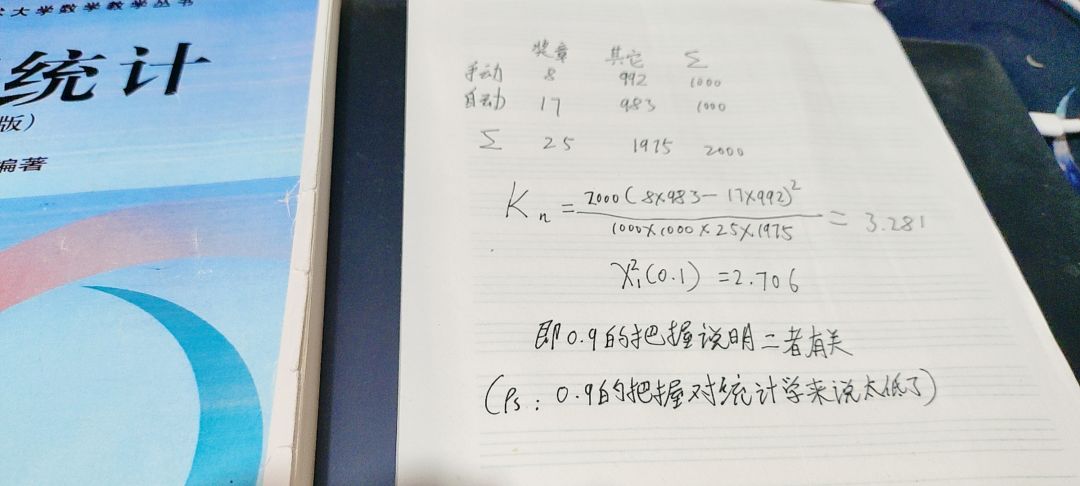 大学数学教学丛书
统计
版）
编著
奖章 其它 Σ
手动 8 992 1000
自动 17 983 1000
Σ 25 1975 2000
Kn = 2000(8×983－17×992)² / 1000×1000×25×1975 = 3.281
χ²₁(0.1) = 2.706
即0.9的把握说明二者有关
(Ps：0.9的把握对统计学来说太低了)